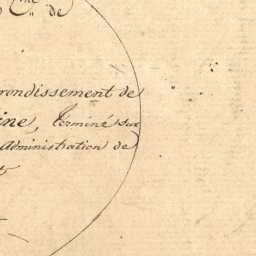 C.ne de
rondissement de
ine, terminé sur
administration de